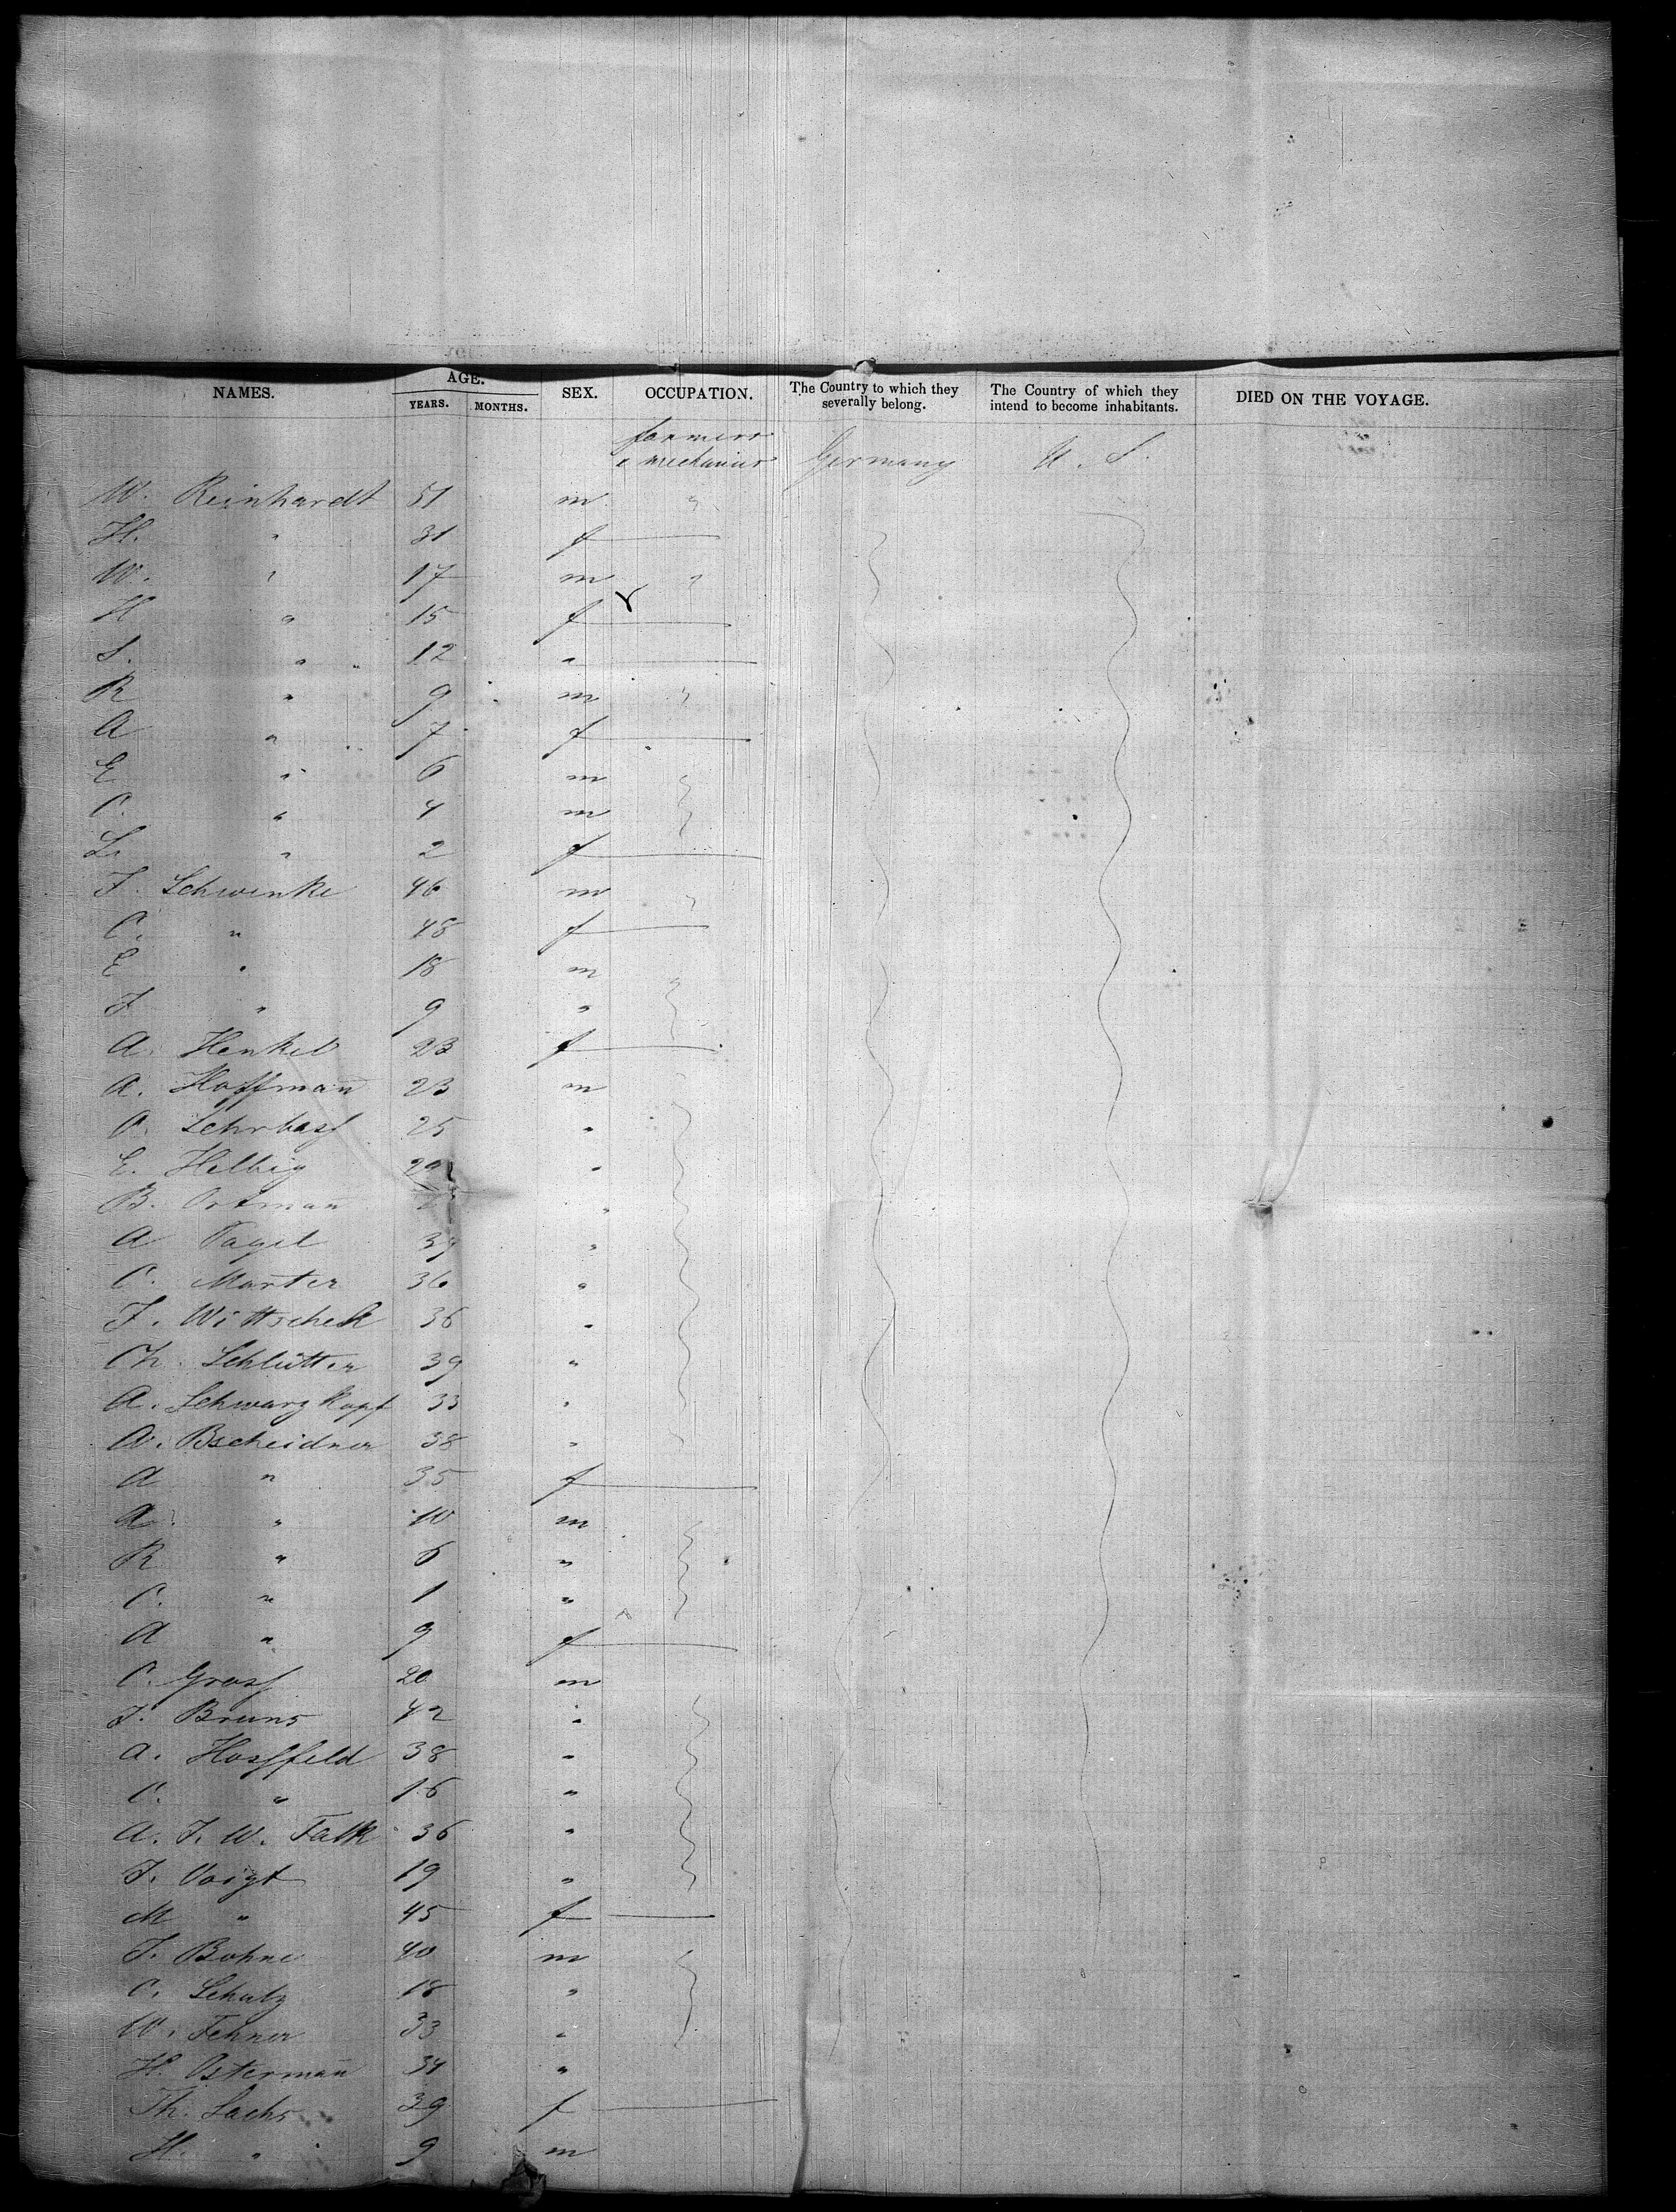 NAMES. AGE. SEX. OCCUPATION. The Country to which they severally belong. The Country of which they intend to become inhabitants. DIED ON THE VOYAGE.
YEARS. MONTHS.
farmers
& mechanics Germany U. S.
W. Reinhardt 51 m "
H. " 31 f
W. " 17 m "
H " 15 f
S. " 12 "
R " 9 m "
A " 7 f
E " 6 m
C. " 4 m
L. " 2 f
F. Schwenke 46 m
C. " 48 f
E " 18 m
F " 9 "
A. Henkel 23 f
A. Hoffman̄ 23 m
25 "
E. Helbig "
B. Ortman̄ "
A "
C. Marter 36 "
F. Wittscheck 36 "
Ch. Schlütter 39 "
A. Schwarzkopf 33 "
A. Bscheidner 38 "
A " 35 f
A. " 10 m
R " 6 "
C. " 1 "
A " 9 f
C. Grosſ 20 m
F. Bruns 42 "
A. Hosſfeld 38 "
C. " 16 "
A. F. W. Falk 36 "
F. Voigt 19 "
M " 45 f
F. Bohne 40 m
C. Schulz 18 "
W. Fehner 33 "
H. Osterman̄ 34 "
Th. Sachs 39 f
H. " 9 m